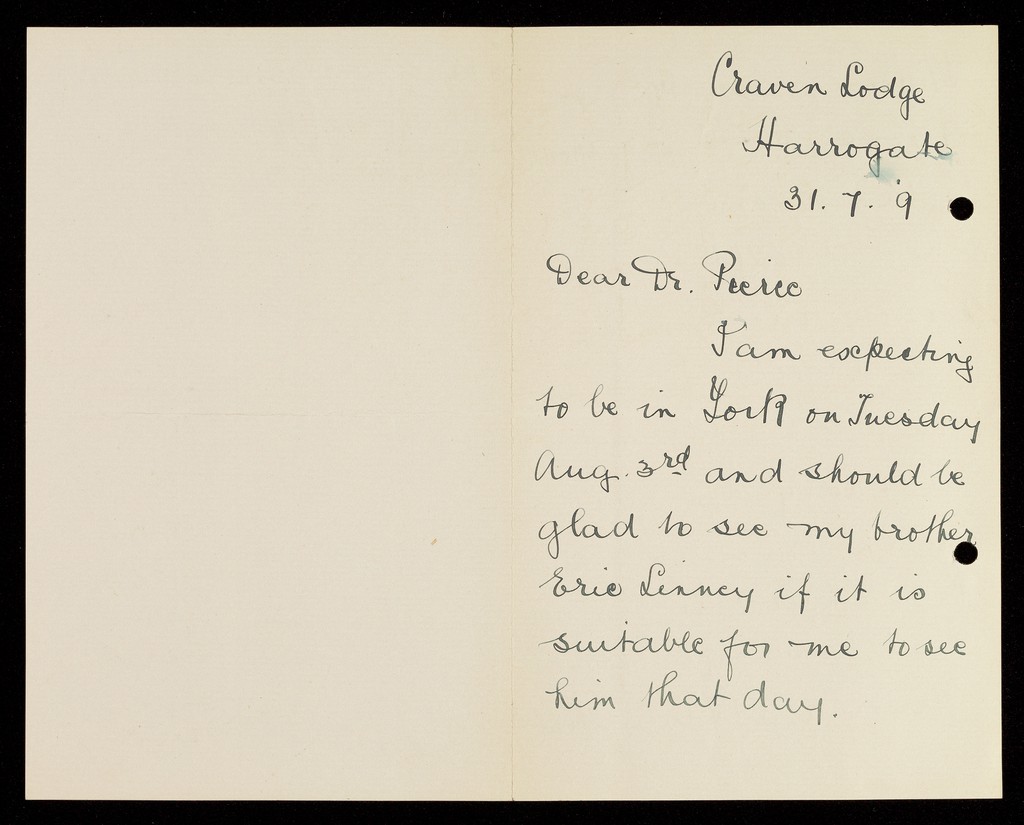 Craven Lodge
Harrogate
31. 7. '9
Dear Dr. Pierce
I am expecting
to be in York on Tuesday
Aug. 3rd and should be
glad to see my brother
Eric Linney if it is
suitable for me to see
him that day.